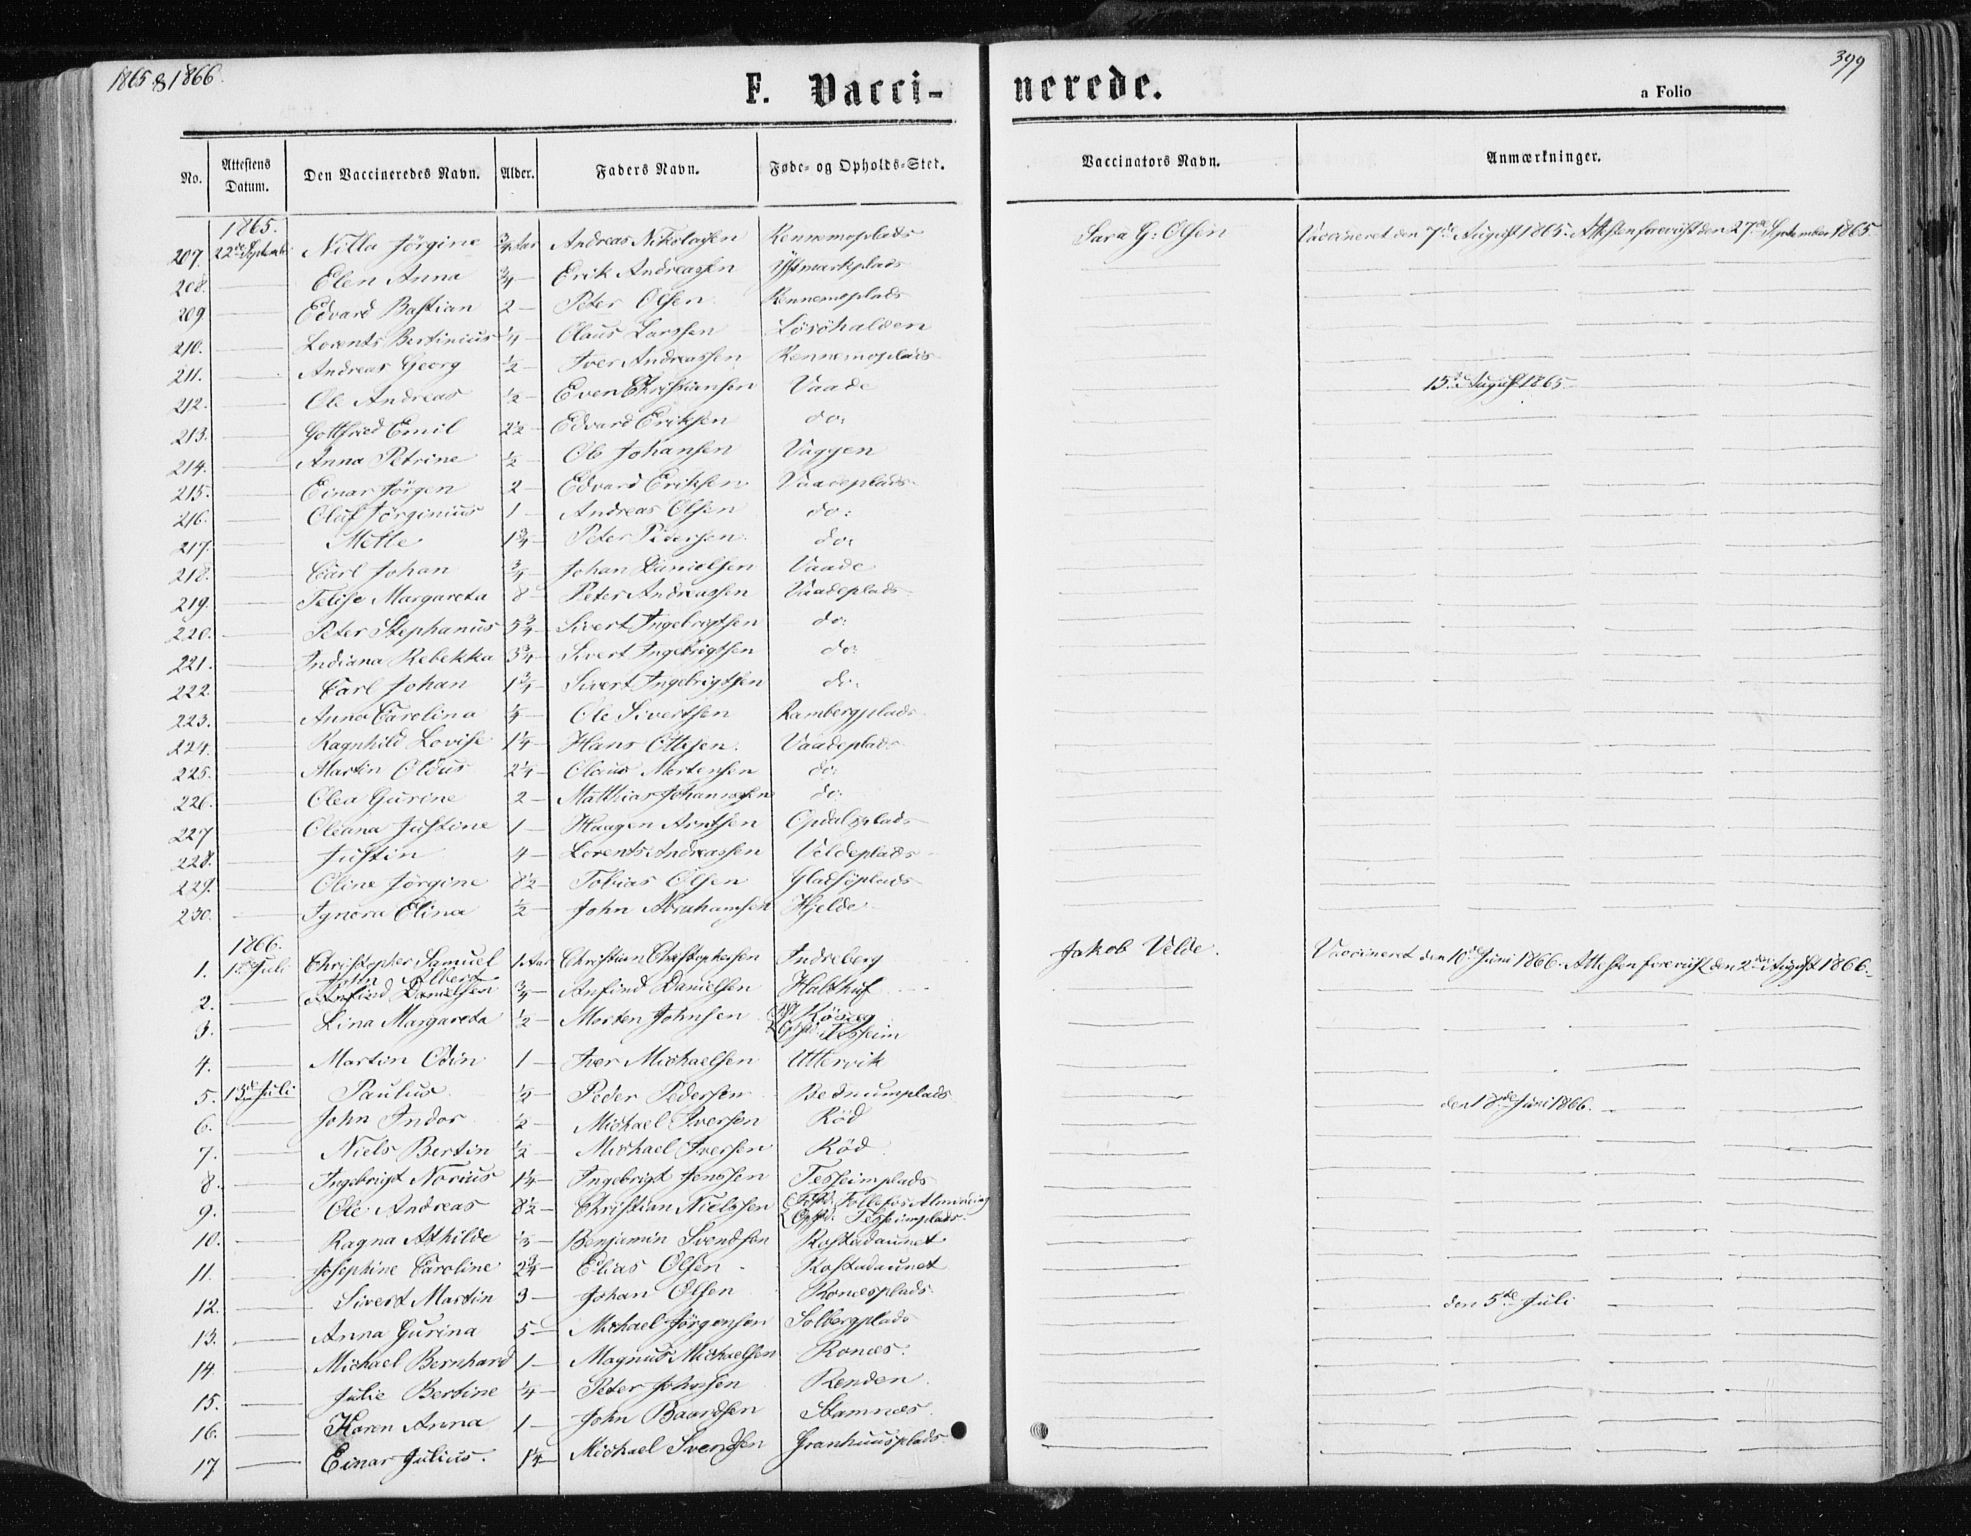 1865 & 1866.
399
F. Vaccinerede.
a Folio
No. | Attestens Datum. | Den Vaccineredes Navn. | Alder. | Faders Navn. | Føde- og Opholds-Sted. | Vaccinators Navn. | Anmærkninger.
1865.
207. 22de September Nilla Jörgine 3/4 Aar Andreas Nikolaysen Rennemoplads Sara G: Olsen Vaccineret den 7de August 1865. Attesten forevist den 27de September 1865
208. — Elen Anna 3/4 — Erik Andreassen
209 — Edvard Bastian 2 — Peter Olsen Rennemoplads
210. — Lorents Bertinius 1/4 — Olaus Larssen Lösöhalden
211. — Andreas Georg 1/2 — Iver Andreassen Rennemoplads
212. — Ole Andreas 1/2 — Even Christiansen Vaade 15de August 1865.
213. — Gottfried Emil 2 1/2 — Edvard Eriksen do:
214. — Anna Petrine 1/2 — Ole Johansen Vaggen
215. — Einar Jörgen 2 — Edvard Eriksen Vaadeplads
216. — Oluf Jörginius 1 — Andreas Olsen do:
217. — Mette 1 3/4 — Peter Pedersen do:
218. — Carl Johan 3/4 — Johan Danielsen Vaade
219. — Felise Margareta 8 — Peter Andreassen Vaadeplads
220. — Peter Stephanus 5 3/4 — Sivert Ingebrigtsen do:
221. — Indiana Rebekka 3 3/4 — Sivert Ingebrigtsen do:
222. — Carl Johan 1 3/4 — Sivert Ingebrigtsen do:
223. — Anna Carolina — Ole Sivertsen Rambergplads
224. — Ragnhild Lovise 1 1/4 — Hans Ottesen. Vaadeplads
225. — Martin Olaus 2 1/4 — Olaus Mortensen do:
226. — Olea Gurine 2 — Matthias Johannessen do:
227 — Oleana Justine 1 — Haagen Arntsen Opdalsplads
228. — Justin 4 — Lorents Andreassen Veldeplads
229. — Oline Jörgine 8 1/2 — Tobias Olsen Gladsöplads
230. — Ignora Elina 1/2 — John Abrahamsen Hjelde
1866.
1. 1ste Juli Christopher Samuel 1 Aar Christian Christophersen Indreberg Jakob Velde. Vaccineret den 10de Juni 1866. Attesten forevist den 2den August 1866.
John Albert
2. — Anfind Danielsen 3/4 — Anfind Danielsen Halthuf
3. — Lina Margareta 1/2 — Morten Johnsen
Tesseim
4. — Martin Odin 1 — Iver Michaelsen Uttervik
5. 13de Juli Paulus 1/2 — Peder Pedersen Bednumplads den 18de Juni 1866.
6. — John Indor 1/2 — Michael Iversen Röd
7. — Niels Bertin 1/2 — Michael Iversen Röd.
8. — Ingebrigt Norius 1 1/4 — Ingebrigt Jenssen Tesseimplads
9. — Ole Andreas 8 1/2 — Christian Nielssen Födt: Follefos Almindning
Opfd: Tesseimplads.
10. — Ragna Athilde 1/3 — Benjamin Svendsen Rostadaunet
11. — Josephine Caroline 2 3/4 — Elias Olsen Rostadaunet
12. — Sivert Martin 3 — Johan Olsen Ronesplads den 5te Juli
13. — Anna Gurina 5 — Michael Jörgensen Solbergplads
14. — Michael Bernhard 1 — Magnus Michaelsen Rones.
15. — Julie Bertine 1/4 — Peter Johnsen Renden.
16. — Karen Anna 1 — John Baardsen Stamnes.
17 — Einar Julius. 1 1/4 — Michael Svendsen Granhuusplads